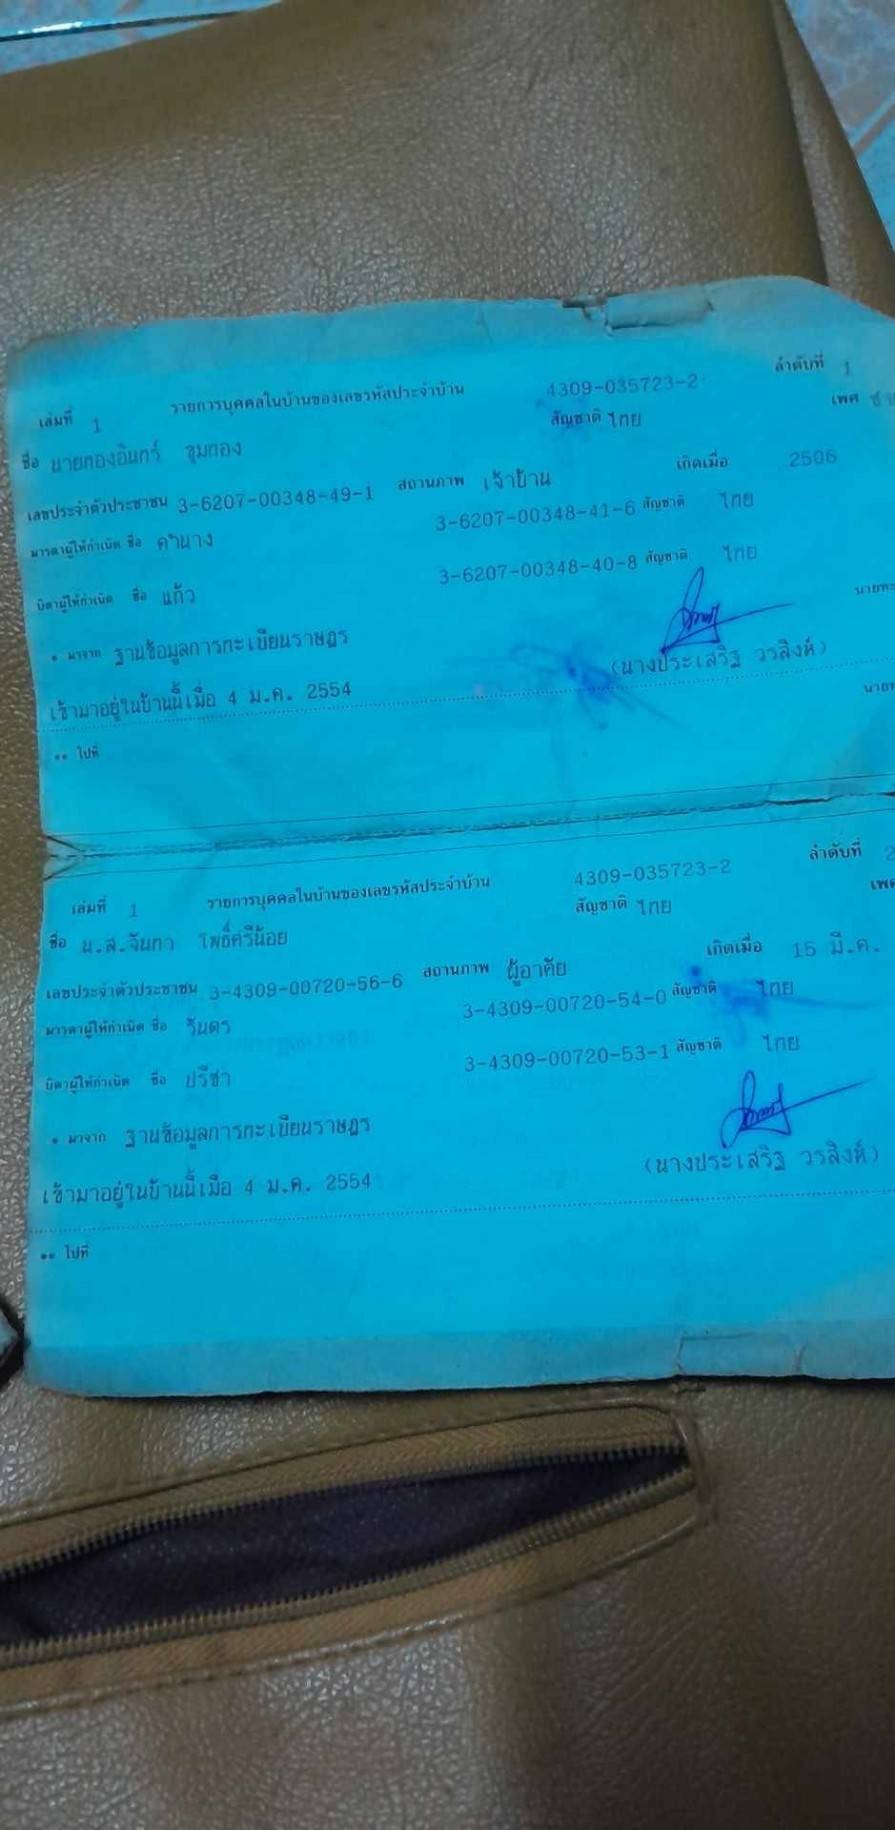 เล่มที่ 1 รายการบุคคลในบ้านของเลขรหัสประจำบ้าน 4309-035723-2 ลำดับที่ 1
ชื่อ นายทองอินทร์ ชุมทอง สัญชาติ ไทย เพศ
เลขประจำตัวประชาชน 3-6207-00348-49-1 สถานภาพ เจ้าบ้าน เกิดเมื่อ 2506
มารดาผู้ให้กำเนิด ชื่อ คำนาง 3-6207-00348-41-6 สัญชาติ ไทย
บิดาผู้ให้กำเนิด ชื่อ แก้ว 3-6207-00348-40-8 สัญชาติ ไทย
* มาจาก ฐานข้อมูลการทะเบียนราษฎร
(นางประเสริฐ วรสิงห์)
เข้ามาอยู่ในบ้านนี้เมื่อ 4 ม.ค. 2554
** ไปที่
เล่มที่ 1 รายการบุคคลในบ้านของเลขรหัสประจำบ้าน 4309-035723-2 ลำดับที่ 2
ชื่อ น.ส.จันทา โพธิ์ศรีน้อย สัญชาติ ไทย เพศ
เลขประจำตัวประชาชน 3-4309-00720-56-6 สถานภาพ ผู้อาศัย เกิดเมื่อ 15 มี.ค.
มารดาผู้ให้กำเนิด ชื่อ 3-4309-00720-54-0 สัญชาติ ไทย
บิดาผู้ให้กำเนิด ชื่อ ปรีชา 3-4309-00720-53-1 สัญชาติ ไทย
* มาจาก ฐานข้อมูลการทะเบียนราษฎร
(นางประเสริฐ วรสิงห์)
เข้ามาอยู่ในบ้านนี้เมื่อ 4 ม.ค. 2554
** ไปที่